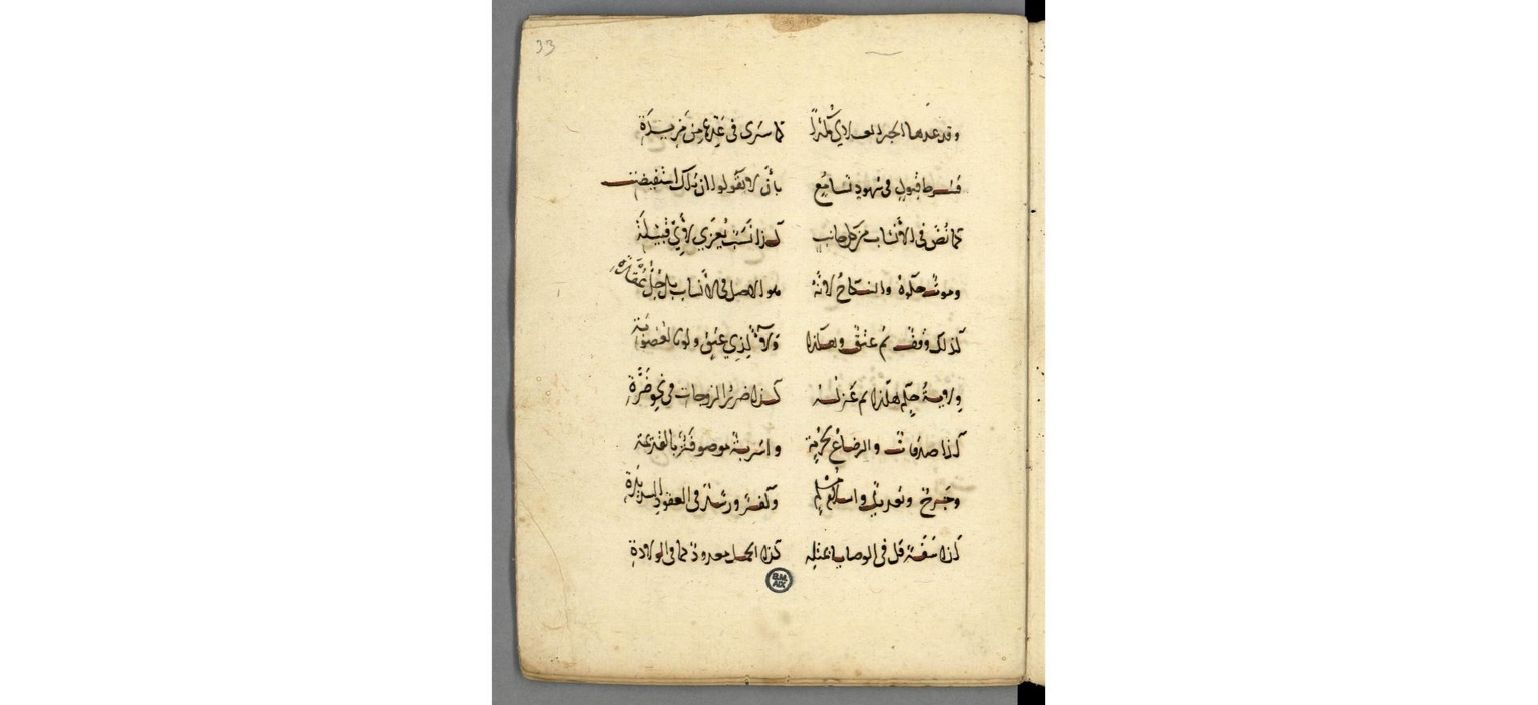 33
وقد عدها الجد لعلاي كل ما سرى في عدها من مزيدة
فشرط قبول في شهود تسامع بأن لا يقولوا ان تلك استفيضت
كما نص في الأنساب من كل جانب كذا نسب يعزي لأي قبيلة
وموت حكوه والنكاح لأنه هو الاصل في الأنساب بل جل
كذلك وقف ثم عتق وهكذا ولاء الذي عتق ولو بالعصوبة
ولاية حكم هكذا ثم عزله كذا ضرر الزوجات في نحو ضرة
كذا صدقات والرضاع بحرمة واشربة موصوفة بالقديمة
وجرح وتعديل واسلام مسلم وكفر ورشد في العقود
كذا سفه قل في الوصايا بمثله كذا الحمل معدود كما في الولادة
B.M. AIX